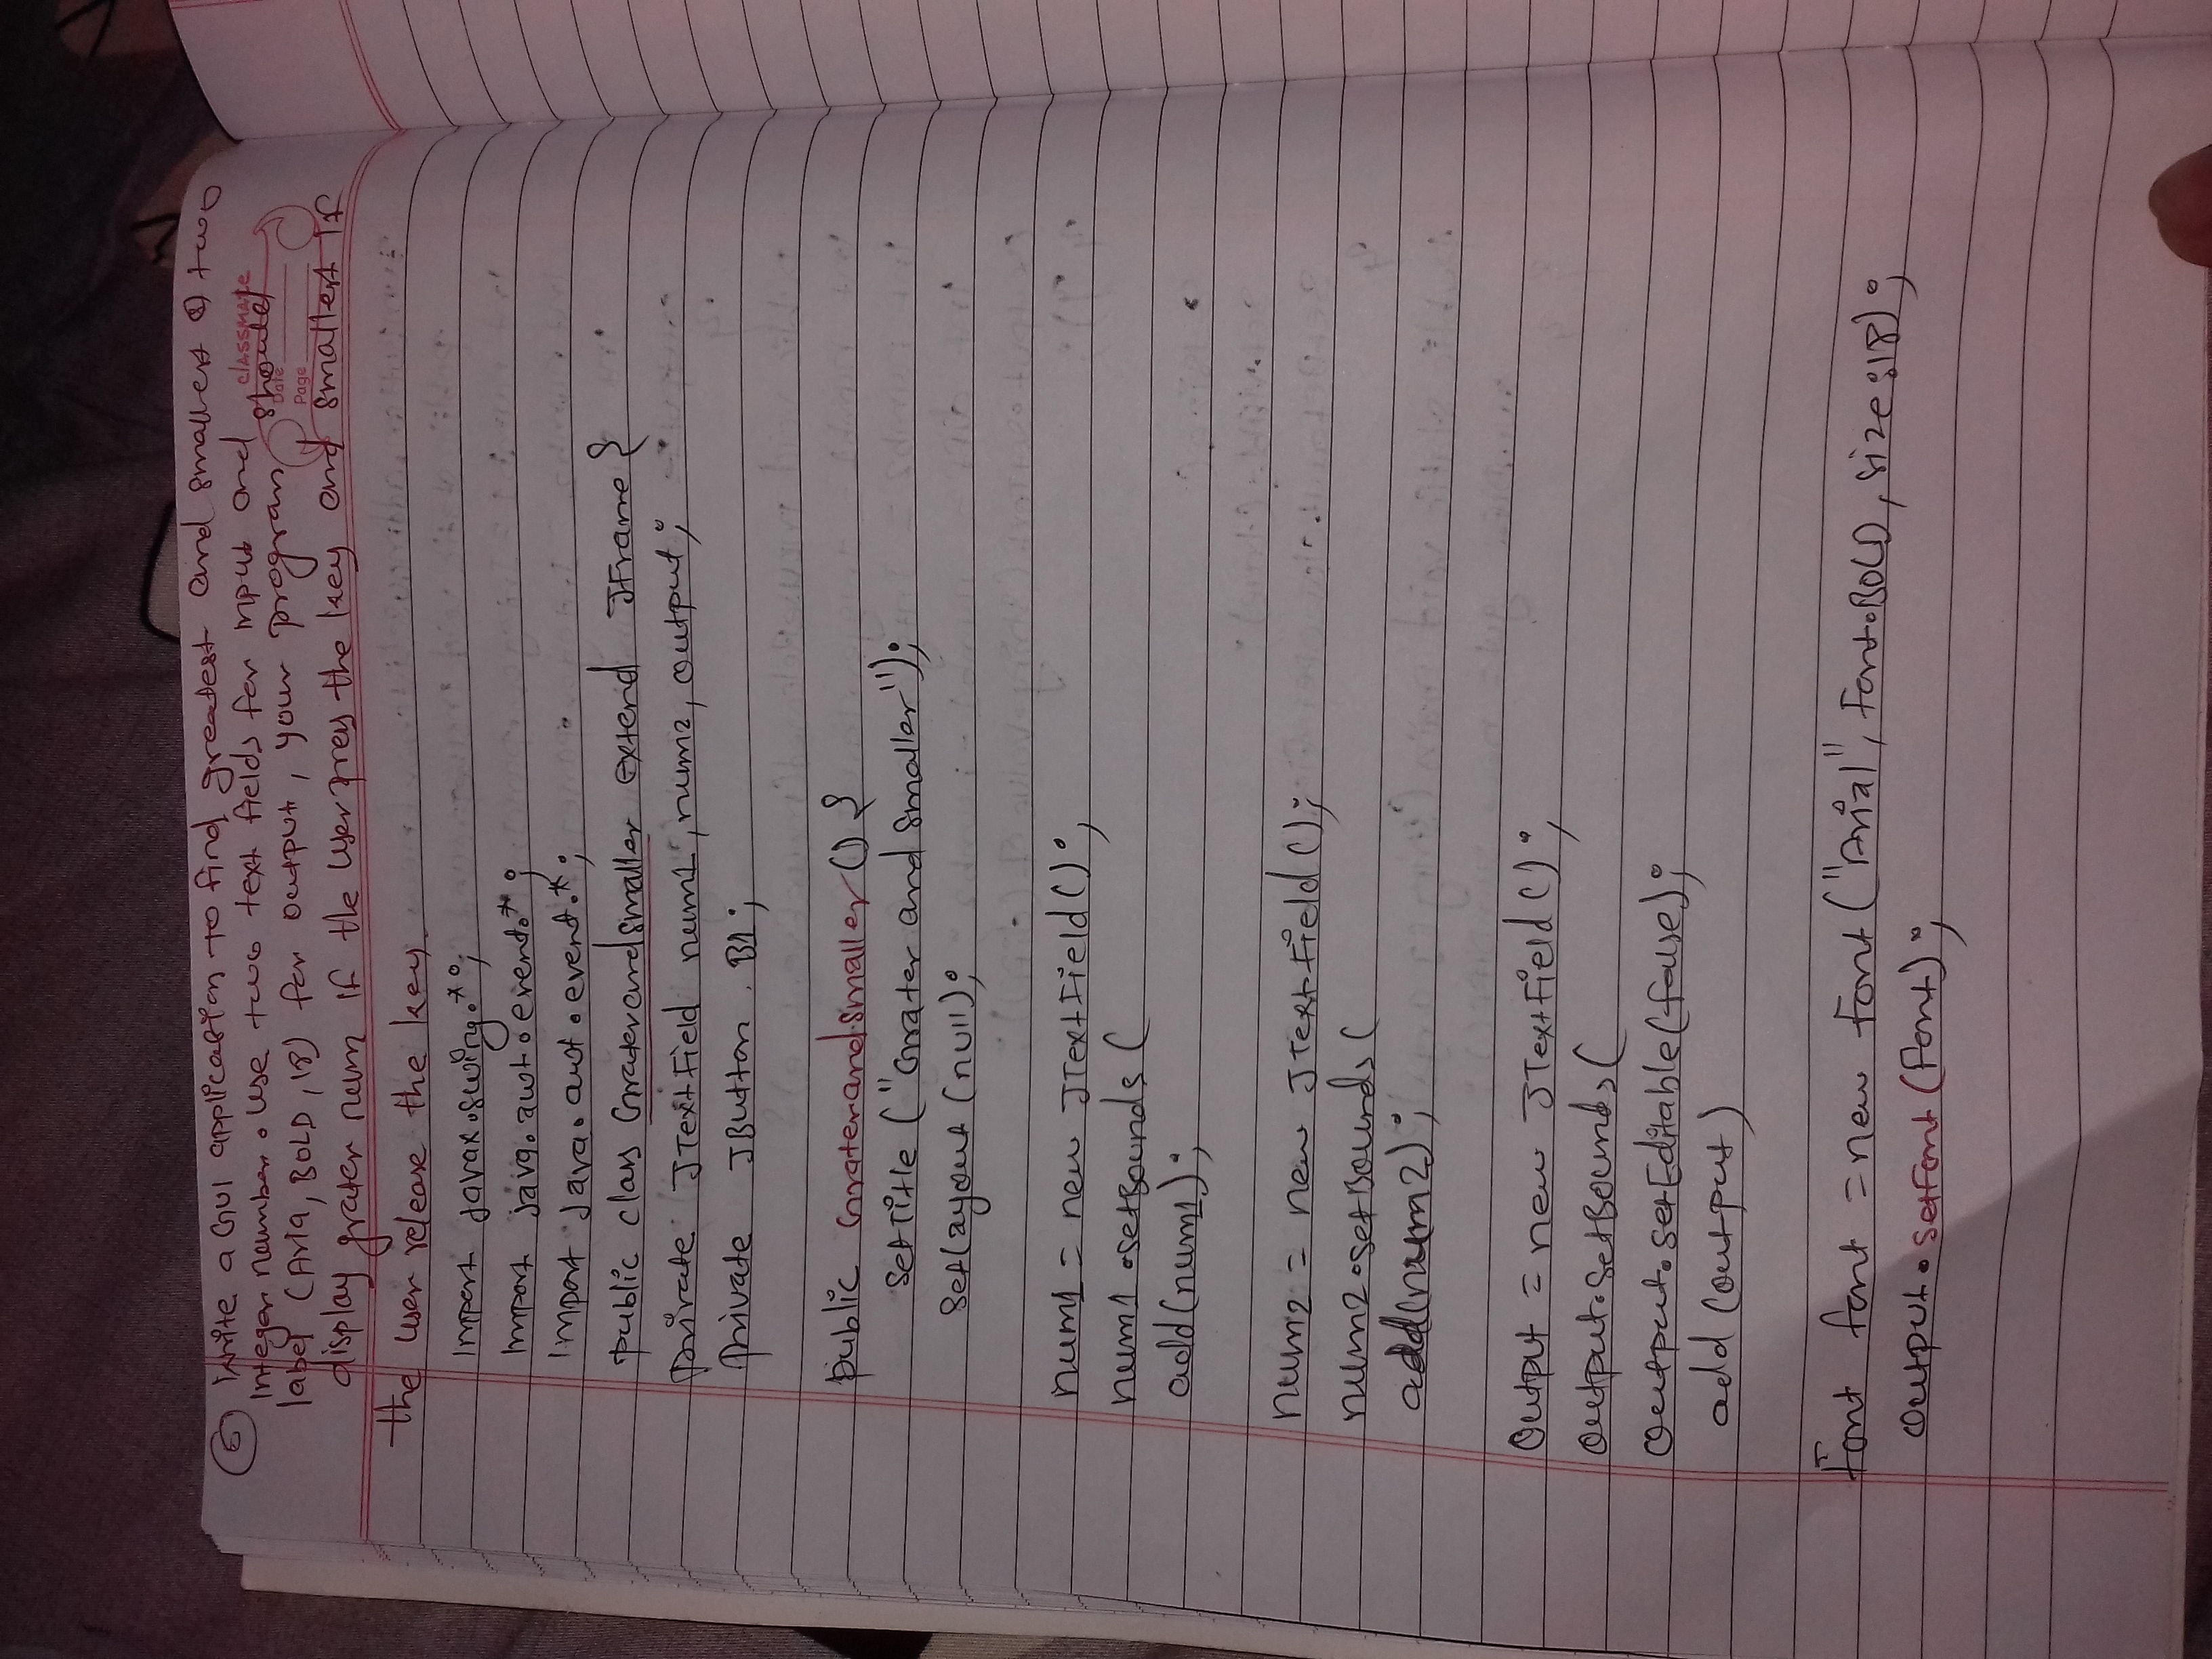 6 Write a GUI application to find greatest and smallest of two
Integer number. Use two text fields for input and
classmate
should
label (Aria, BOLD, 18) for output, your program
Date
Page
display grater num if the user pres the key and smallest if
the user release the key.
Import javax.swing.*;
Import java.awt.event.*;
Import Java.awt.event.*;
public class Graterandsmaller extend JFrame {
private JTextField num1, num2, output;
Private JButton B1;
public Graterandsmaller () {
SetTitle ("Grater and smaller");
Setlayout (null);
num1 = new JTextField();
num1.setBounds (
add(num1);
num2 = new JTextField();
num2.setBounds (
add(num2);
Output = new JTextField();
Output.SetBounds (
Output.setEditable(false);
add (output)
Font font = new Font ("Arial", Font.BOLD, size:18);
Output.setFont (Font);